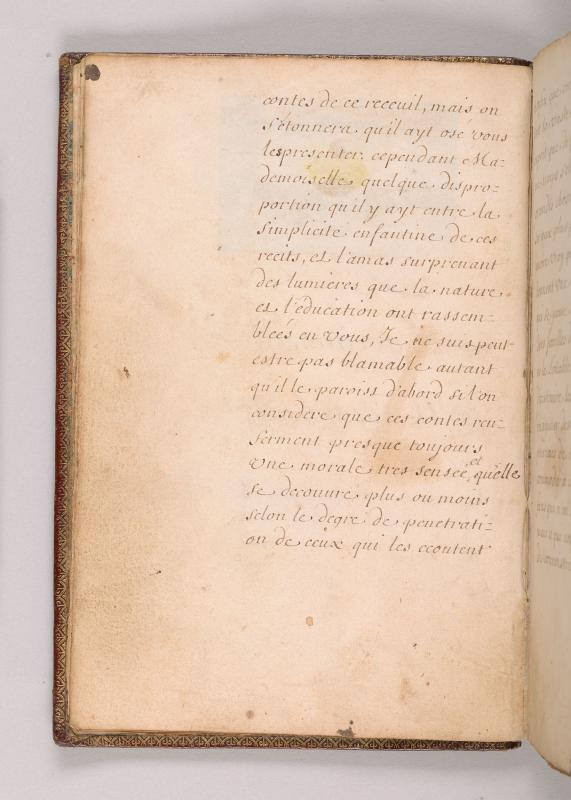 contes de ce receuil, mais on
s'étonnera qu'il ayt osé vous
lespresenter. cependant Ma=
demoiselle quelque dispro=
portion qu'il y ayt entre la
simplicité enfantine de ces
recits, et l'amas surprenant
des lumieres que la nature
et l'éducation ont rassem=
bleés en vous, Je ne suis peut-
estre pas blamable autant
qu'il le paroist d'abord si l'on
considere que ces contes ren=
ferment presque toujours
une morale tres senseé, et qu'elle
se decouvre plus ou moins
selon le degre de penetrati=
on de ceux qui les ecoutent